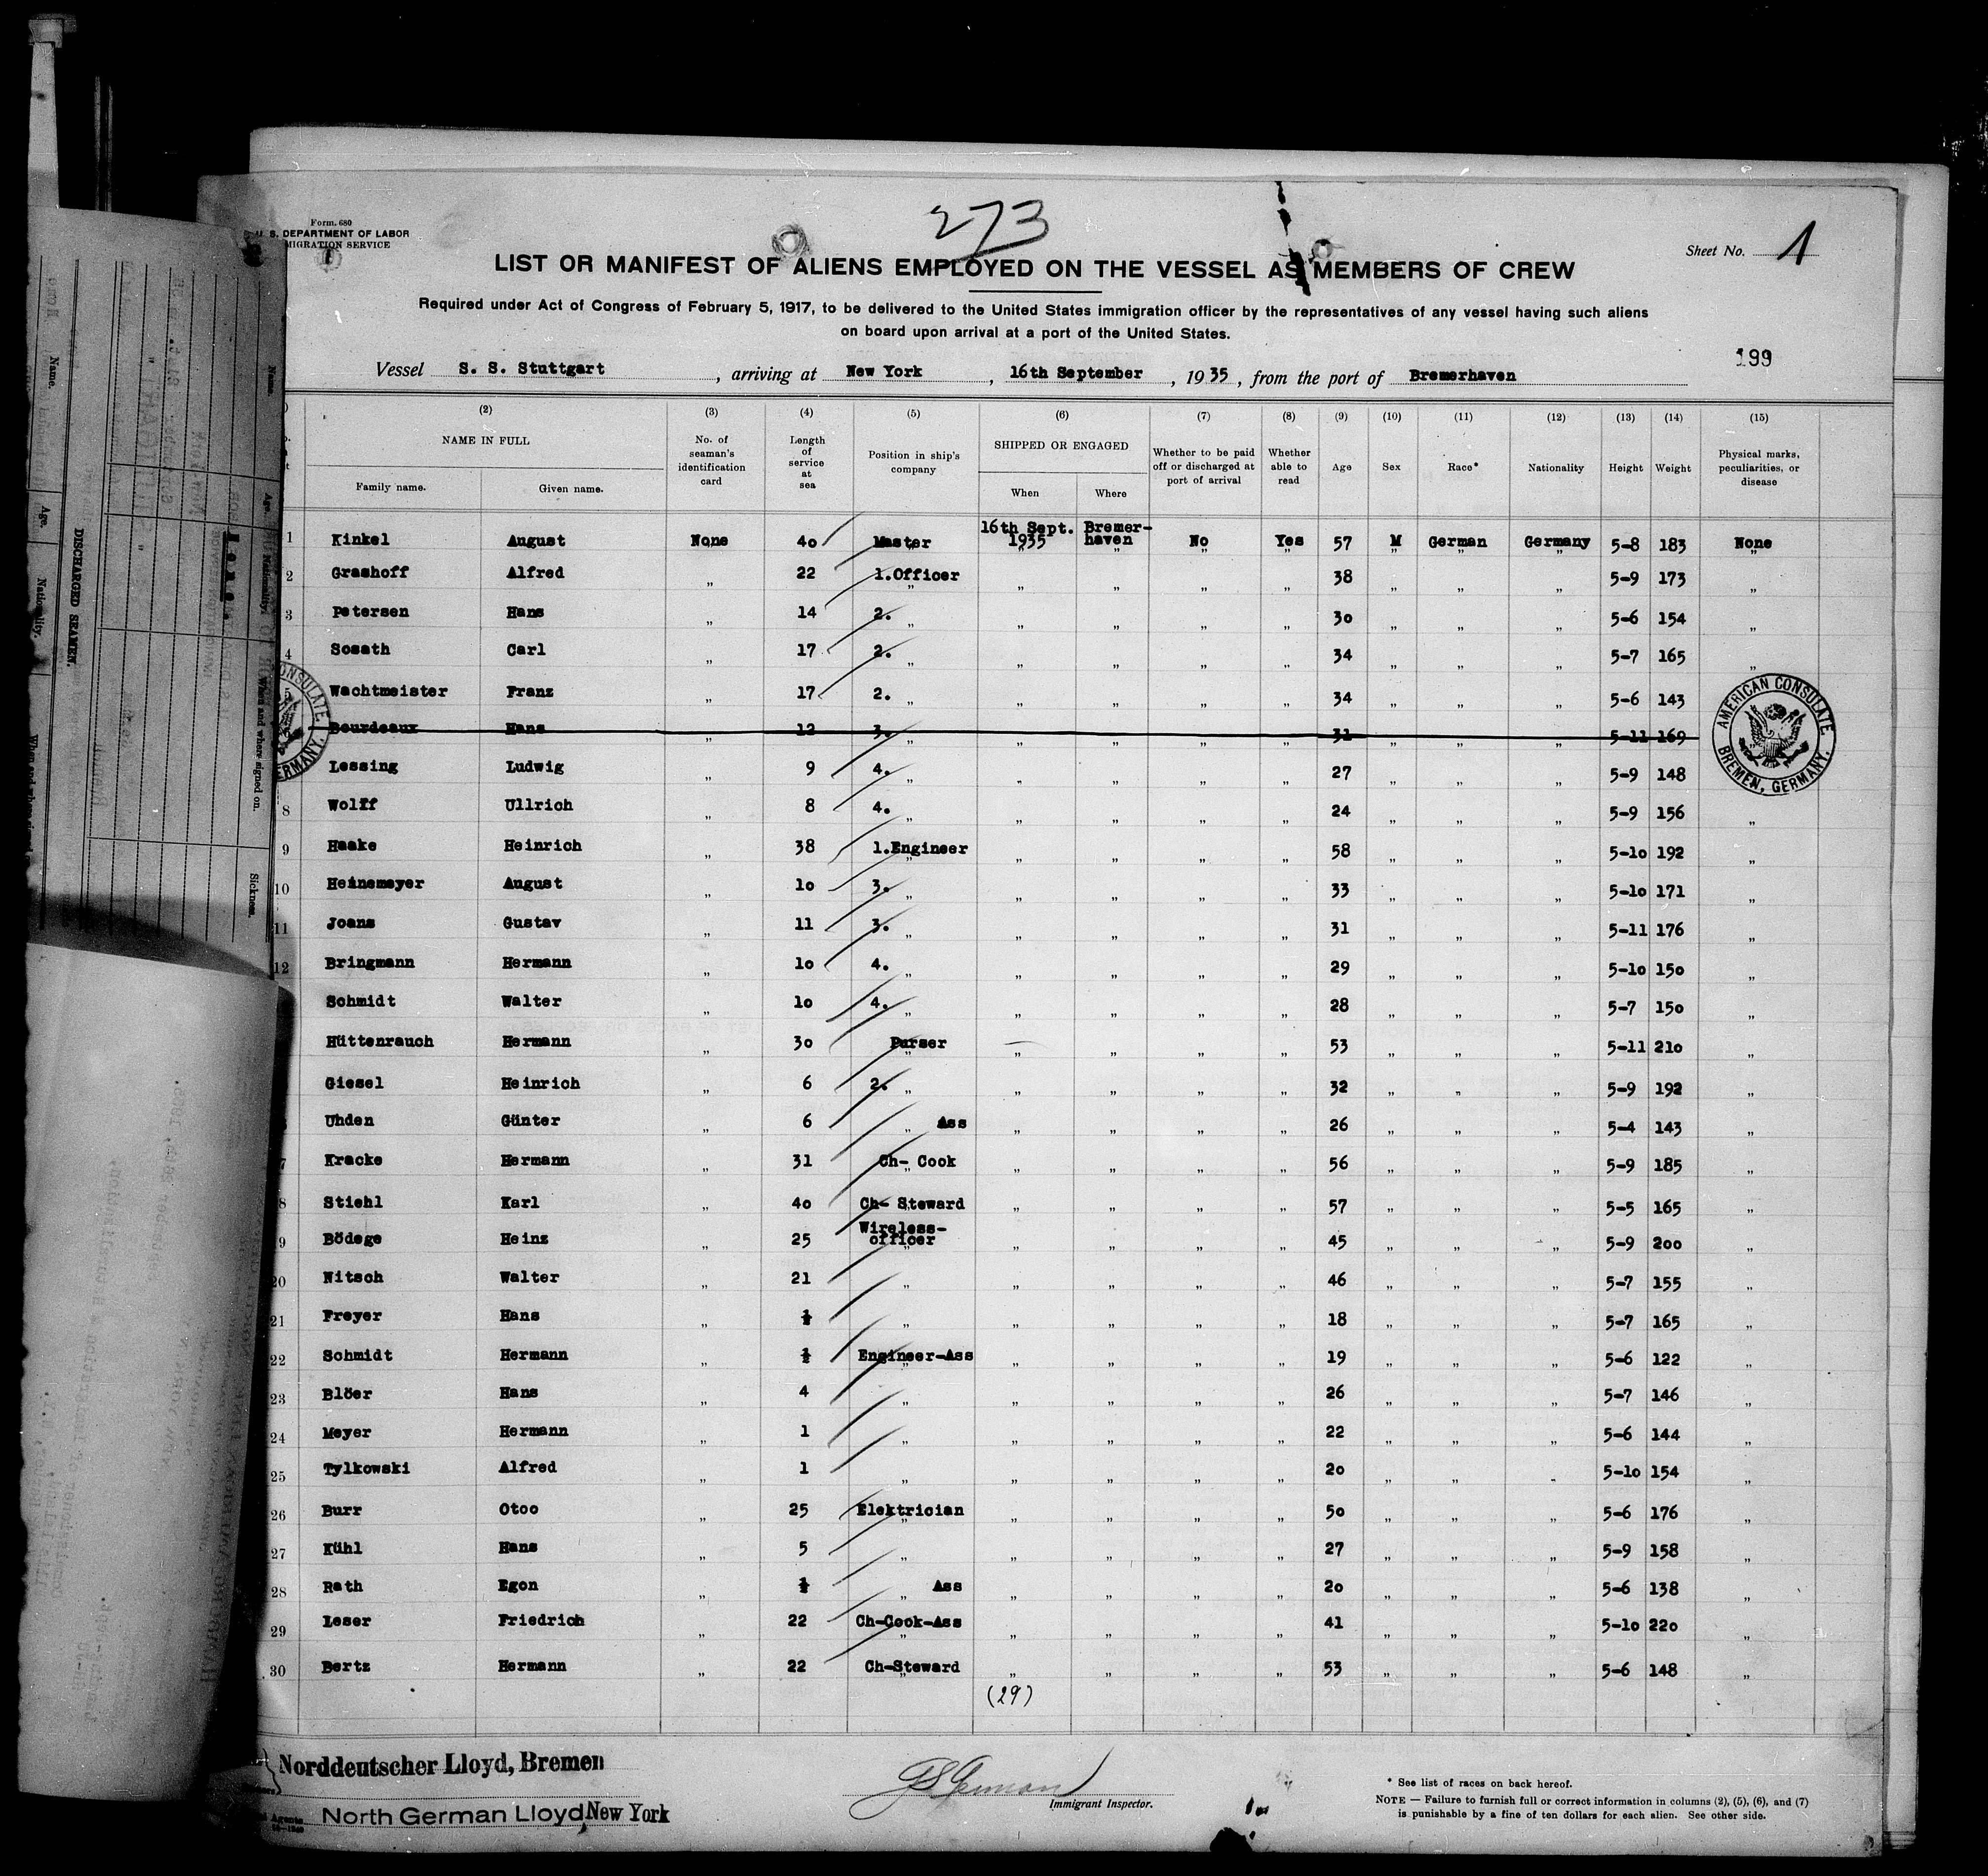 273
Form. 680
U. S. DEPARTMENT OF LABOR
MIGRATION SERVICE
Sheet No. 1
LIST OR MANIFEST OF ALIENS EMPLOYED ON THE VESSEL AS MEMBERS OF CREW
Required under Act of Congress of February 5, 1917, to be delivered to the United States immigration officer by the representatives of any vessel having such aliens
on board upon arrival at a port of the United States.
199
Vessel S. S. Stuttgart, arriving at New York, 16th September, 1935, from the port of Bremerhaven
(2) (3) (4) (5) (6) (7) (8) (9) (10) (11) (12) (13) (14) (15)
NAME IN FULL
Family name. Given name.
No. of seaman's identification card
Length of service at sea
Position in ship's company
SHIPPED OR ENGAGED
When Where
Whether to be paid off or discharged at port of arrival
Whether able to read
Age Sex Race* Nationality Height Weight
Physical marks, peculiarities, or disease
1 Kinkel August None 40 Master 16th Sept. 1935 Bremer-haven No Yes 57 M German Germany 5-8 183 None
2 Grashoff Alfred " 22 1.Officer " " " " 38 " " " 5-9 173 "
3 Petersen Hans " 14 2. " " " " " 30 " " " 5-6 154 "
4 Sosath Carl " 17 2. " " " " " 34 " " " 5-7 165 "
5 Wachtmeister Franz " 17 2. " " " " " 34 " " " 5-6 143
Bourdeaux Hans " 12 3. " " " " " 31 " " " 5-11 169
Lessing Ludwig " 9 4. " " " " " 27 " " " 5-9 148
8 Wolff Ullrich " 8 4. " " " " " 24 " " " 5-9 156 "
9 Haake Heinrich " 38 1.Engineer " " " " 58 " " " 5-10 192 "
10 Heinemeyer August " 10 3. " " " " " 33 " " " 5-10 171 "
11 Joans Gustav " 11 3. " " " " " 31 " " " 5-11 176 "
12 Bringmann Hermann " 10 4. " " " " " 29 " " " 5-10 150 "
Schmidt Walter " 10 4. " " " " " 28 " " " 5-7 150 "
Hüttenrauch Hermann " 30 Purser " " " " 53 " " " 5-11 210 "
Giesel Heinrich " 6 2. " " " " " 32 " " " 5-9 192 "
Uhden Günter " 6 " Ass " " " " 26 " " " 5-4 143 "
7 Kracke Hermann " 31 Ch- Cook " " " " 56 " " " 5-9 185 "
8 Stiehl Karl " 40 Ch- Steward " " " " 57 " " " 5-5 165 "
9 Bödege Heinz " 25 Wireless-officer " " " " 45 " " " 5-9 200 "
20 Nitsch Walter " 21 " " " " " 46 " " " 5-7 155 "
21 Freyer Hans " ½ " " " " " 18 " " " 5-7 165 "
22 Schmidt Hermann " ½ Engineer-Ass " " " " 19 " " " 5-6 122 "
23 Blöer Hans " 4 " " " " " 26 " " " 5-7 146 "
24 Meyer Hermann " 1 " " " " " 22 " " " 5-6 144 "
25 Tylkowski Alfred " 1 " " " " " 20 " " " 5-10 154 "
26 Burr Otoo " 25 Elektrician " " " " 50 " " " 5-6 176 "
27 Kühl Hans " 5 " " " " " 27 " " " 5-9 158 "
28 Rath Egon " ½ " Ass " " " " 20 " " " 5-6 138 "
29 Leser Friedrich " 22 Ch-Cook-Ass " " " " 41 " " " 5-10 220 "
30 Bertz Hermann " 22 Ch-Steward " " " " 53 " " " 5-6 148 "
(29)
AMERICAN CONSULATE
BREMEN, GERMANY.
Norddeutscher Lloyd, Bremen
North German Lloyd, New York
Immigrant Inspector.
* See list of races on back hereof.
NOTE — Failure to furnish full or correct information in columns (2), (5), (6), and (7)
is punishable by a fine of ten dollars for each alien. See other side.
Name.
Age.
Nationality.
When and where signed on.
Sickness.
DISCHARGED SEAMEN.
Name.
Age.
Nationality.